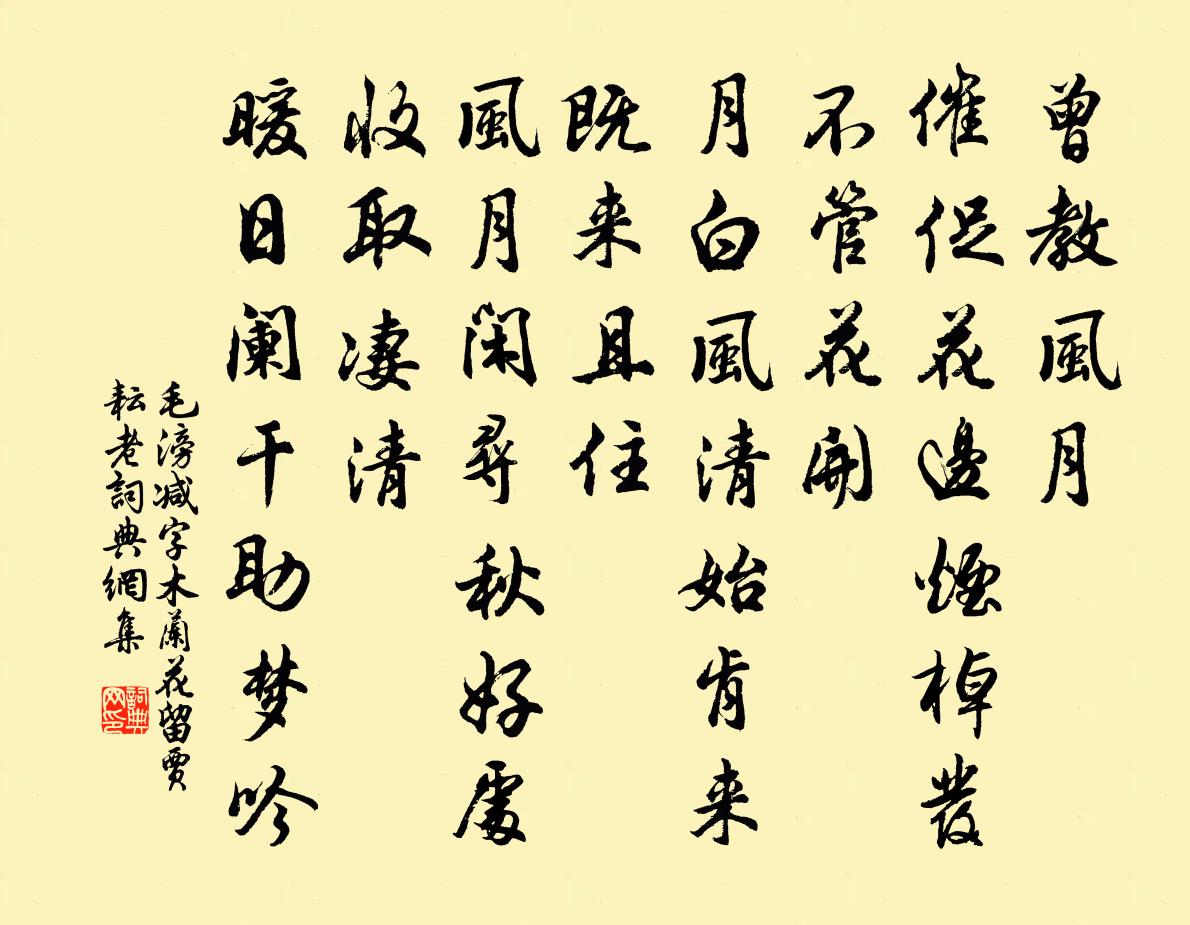 曾教風月
催促花邊煙棹發
不管花開
月白風清始肯来
既来且住
風月閑尋秋好處
收取凄清
暖日闌干助梦吟
毛滂减字木蘭花留賈
耘老詞典網集
詞典網印